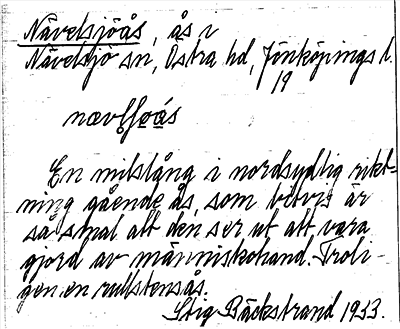 Nävelsjöås, ås i
Nävelsjö sn, Östra hd, Jönköpings l.
19
En milslång i nordsydlig rikt-
ning gående ås, som bitvis är
så smal att den ser ut att vara
gjord av människohand. Troli-
gen en rullstensås.
Stig Bäckstrand 1933.